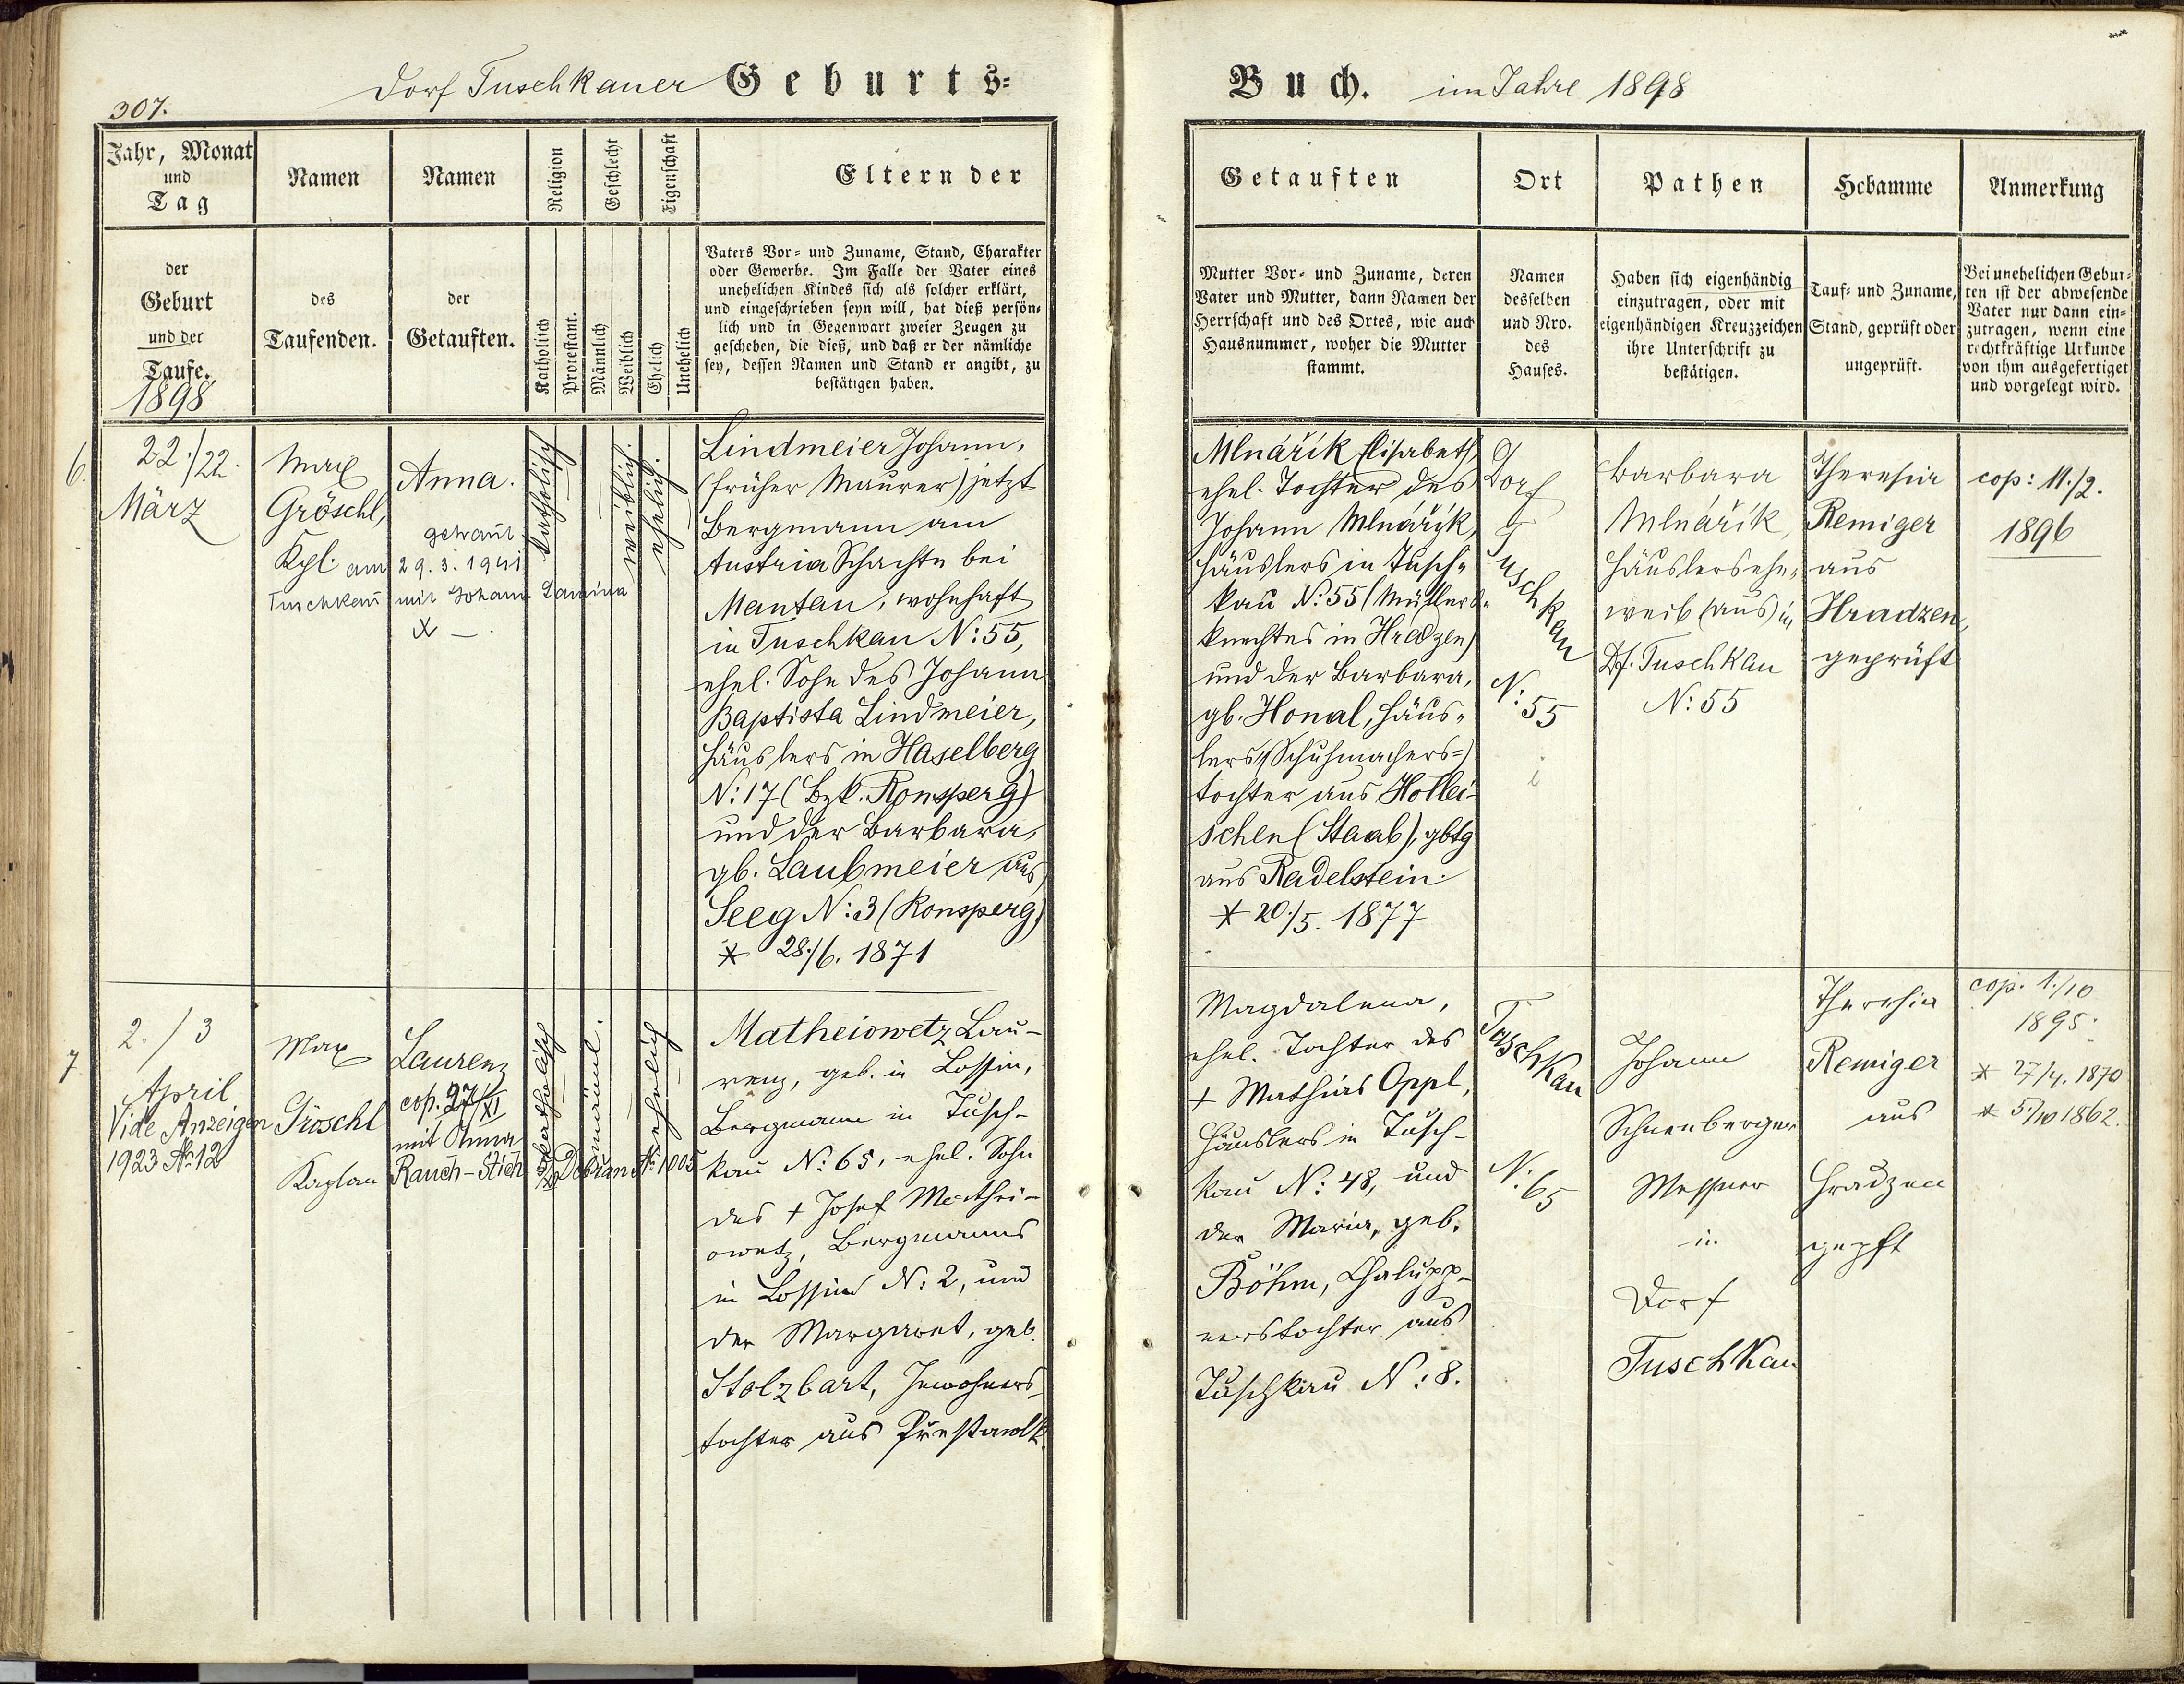 307.
Dorf Tuschkauer Geburts=
Buch. im Jahre 1898
Jahr, Monat
und
Tag
der
Geburt
und der
Taufe.
1898
Namen
des
Taufenden.
Namen
der
Getauften.
Religion
Katholisch
Protestant.
Geschlecht
Männlich
Weiblich
Eigenschaft
Ehelich
Unehelich
Eltern der
Vaters Vor= und Zuname, Stand, Charakter
oder Gewerbe. Im Falle der Vater eines
unehelichen Kindes sich als solcher erklärt,
und eingeschrieben seyn will, hat dieß persön=
lich und in Gegenwart zweier Zeugen zu
geschehen, die dieß, und daß er der nämliche
sey, dessen Namen und Stand er angibt, zu
bestätigen haben.
Getauften
Mutter Vor= und Zuname, deren
Vater und Mutter, dann Namen der
Herrschaft und des Ortes, wie auch
Hausnummer, woher die Mutter
stammt.
Ort
Namen
desselben
und Nro.
des
Hauses.
Pathen
Haben sich eigenhändig
einzutragen, oder mit
eigenhändigen Kreuzzeichen
ihre Unterschrift zu
bestätigen.
Hebamme
Tauf= und Zuname,
Stand, geprüft oder
ungeprüft.
Anmerkung
Bei unehelichen Gebur=
ten ist der abwesende
Vater nur dann ein=
zutragen, wenn eine
rechtkräftige Urkunde
von ihm ausgefertiget
und vorgelegt wird.
6.
22./22.
März
Max
Gröschl,
Kpl.
Anna.
getraut
am 29.3.1941
Tuschkau mit Johann
katholisch
weiblich.
ehelich.
Lindmeier Johann,
(früher Maurer) jetzt
Bergmann am
Austria Schachte bei
Mantau, wohnhaft
in Tuschkau N: 55,
ehel. Sohn des Johann
Baptista Lindmeier,
Häuslers in Haselberg
N: 17 (Bzk. Ronsperg)
und der Barbara,
gb. Laubmeier aus
Seeg N: 3 (Ronsperg)
* 28./6. 1871
Mlnářík Elisabeth,
ehel. Tochter des
Johann Mlnářík,
Häuslers in Tusch=
kau N: 55 (Müllers=
knechtes in Hradzen)
und der Barbara,
gb. Honal, Häus=
lers (Schuhmachers=)
tochter aus Hollei=
schen (Staab), gbtg
aus Radelstein.
* 20./5. 1877
Dorf
Tuschkau
N: 55
Barbara
Mlnářík,
Häuslersehe=
weib (aus) in
Df. Tuschkau
N: 55
Theresia
Remiger
aus
Hradzen,
geprüft
cop: 11./2.
1896
7
2./3
April
Vide Anzeigen
1923 No 12
Max
Gröschl
Kaplan
Laurenz
cop. 27/XI
mit Anna
Rauch-Stich No 1005
katholisch
männl.
ehelich
Matheiowetz Lau-
renz, geb. in Lossin,
Bergmann in Tusch-
kau N: 65, ehel. Sohn
des + Josef Mathei-
owetz, Bergmanns
in Lossin N: 2, und
der Margaret, geb.
Stolzbart, Inwohners-
tochter aus
Magdalena,
ehel. Tochter des
+ Mathias Oppl,
Häuslers in Tusch-
kau N: 48, und
der Maria, geb.
Böhm, Chalupp-
nerstochter aus
Tuschkau N: 8.
Tuschkau
N: 65
Johann
Schnenberger
Messner
in
Dorf
Tuschkau
Theresia
Remiger
aus
Hradzen
gepft
cop. 1./10
1895.
* 27/4. 1870
* 5/10 1862.